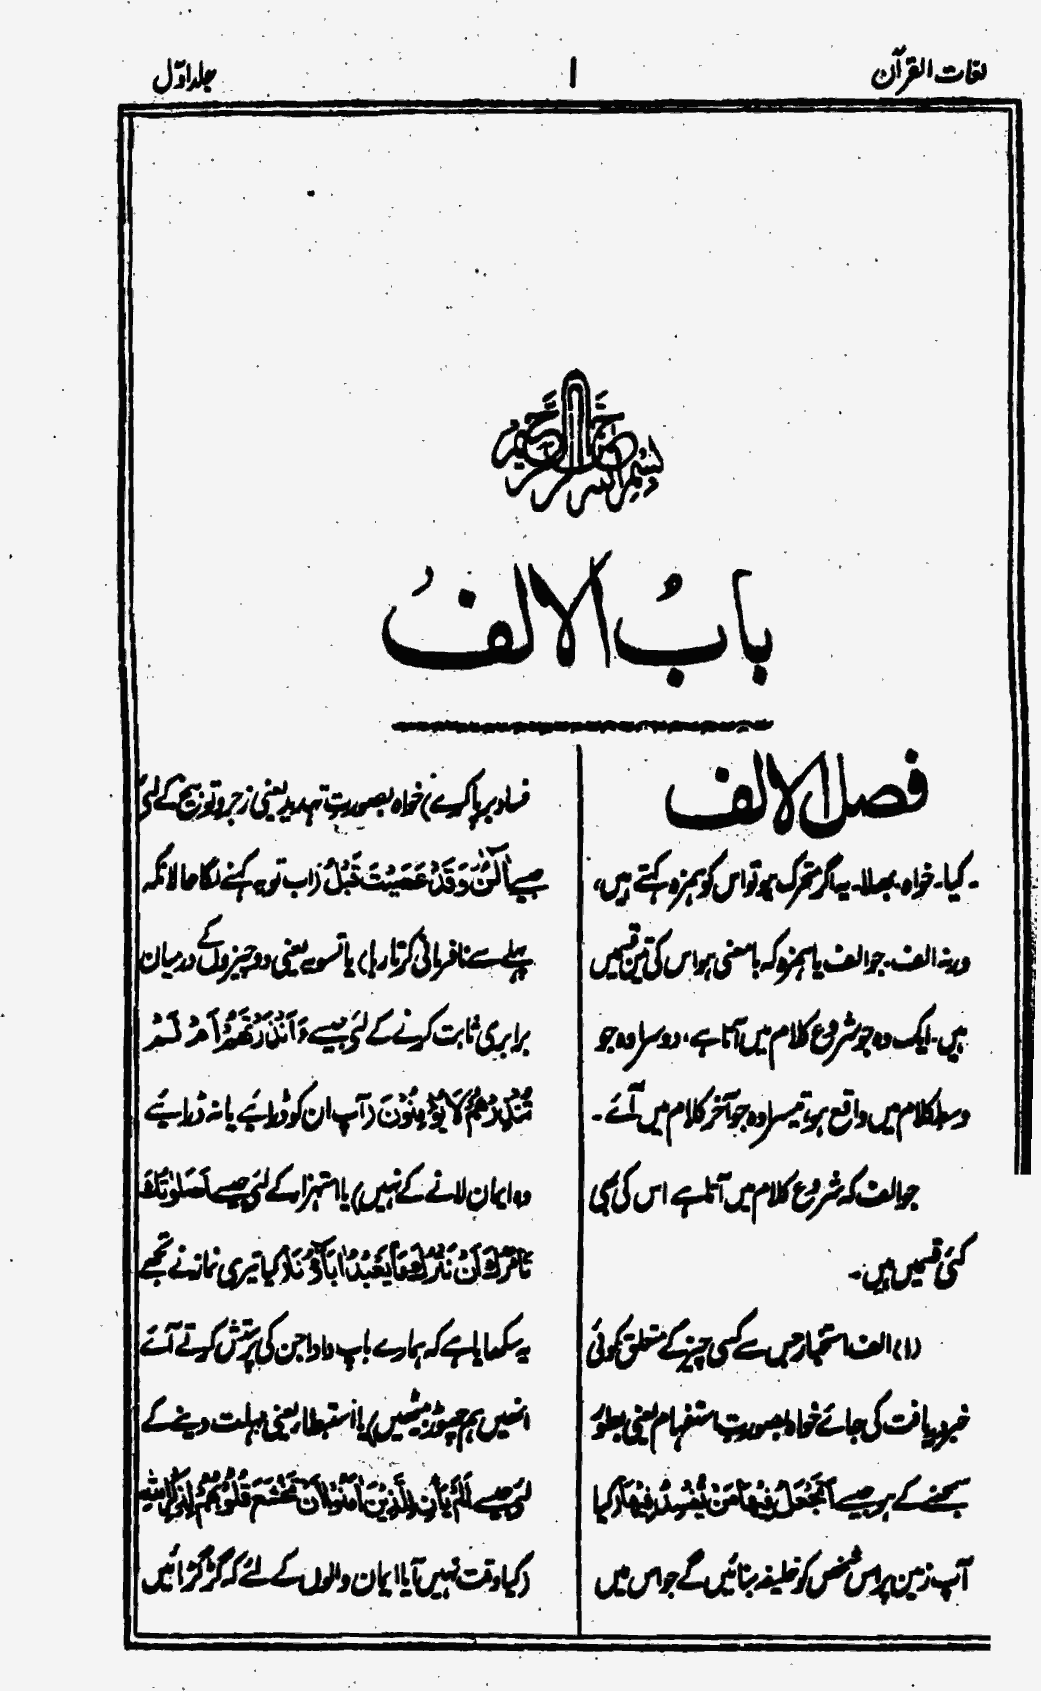 لغات القرآن
۱
جلد اوّل
بسم اللہ الرحمن الرحیم
بابُ الالفُ
فصل الالف
۔ کیا۔ خواہ۔ بھلا۔ یہ اگر متحرک ہو تو اس کو ہمزہ کہتے ہیں،
ورنہ الف۔ جو الف یا ہمزہ کہ بامعنی ہو اس کی تین قسمیں
ہیں۔ ایک وہ جو شروع کلام میں آتا ہے، دوسرا وہ جو
وسط کلام میں واقع ہو، تیسرا وہ جو آخر کلام میں آئے۔
جو الف کہ شروع کلام میں آتا ہے اس کی بھی
کئی قسمیں ہیں۔
(۱) الف استخبار جس سے کسی چیز کے متعلق کوئی
خبر دریافت کی جائے خواہ بصورتِ استفہام یعنی بطور
سمجھنے کے ہو جیسے اَتَجْعَلُ فِیْھَا مَنْ یُّفْسِدُ فِیْھَا (کیا
آپ زمین پر اس شخص کو خلیفہ بنائیں گے جو اس میں
فساد برپا کرے) خواہ بصورتِ تہدید یعنی زجر و توبیخ کے لئے
جیسے آٰلْئٰنَ وَقَدْ عَصَیْتَ قَبْلُ (اب تو یہ کہنے لگا حالانکہ
پہلے سے نافرمانی کرتا رہا) یا تسویہ یعنی دو چیزوں کے درمیان
برابری ثابت کرنے کے لئے جیسے ءَاَنْذَرْتَھُمْ اَمْ لَمْ
تُنْذِرْھُمْ لَا یُؤْمِنُوْنَ (آپ ان کو ڈرائیے یا نہ ڈرائیے
وہ ایمان لانے کے نہیں) یا استہزا کے لئے جیسے اَصَلٰوتُکَ
تَاْمُرُكَ اَنْ نَتْرُكَ مَا یَعْبُدُ اٰبَاؤُنَا (کیا تیری نماز نے تجھے
یہ سکھایا ہے کہ ہمارے باپ دادا جن کی پرستش کرتے آئے
انھیں ہم چھوڑ بیٹھیں) یا استبطار یعنی مہلت دینے کے
لئے جیسے اَلَمْ یَاْنِ لِلَّذِیْنَ اٰمَنُوْا اَنْ تَخْشَعَ قُلُوْبُھُمْ لِذِكْرِ اللّٰهِ
(کیا وقت نہیں آیا ایمان والوں کے لئے کہ گڑگڑائیں